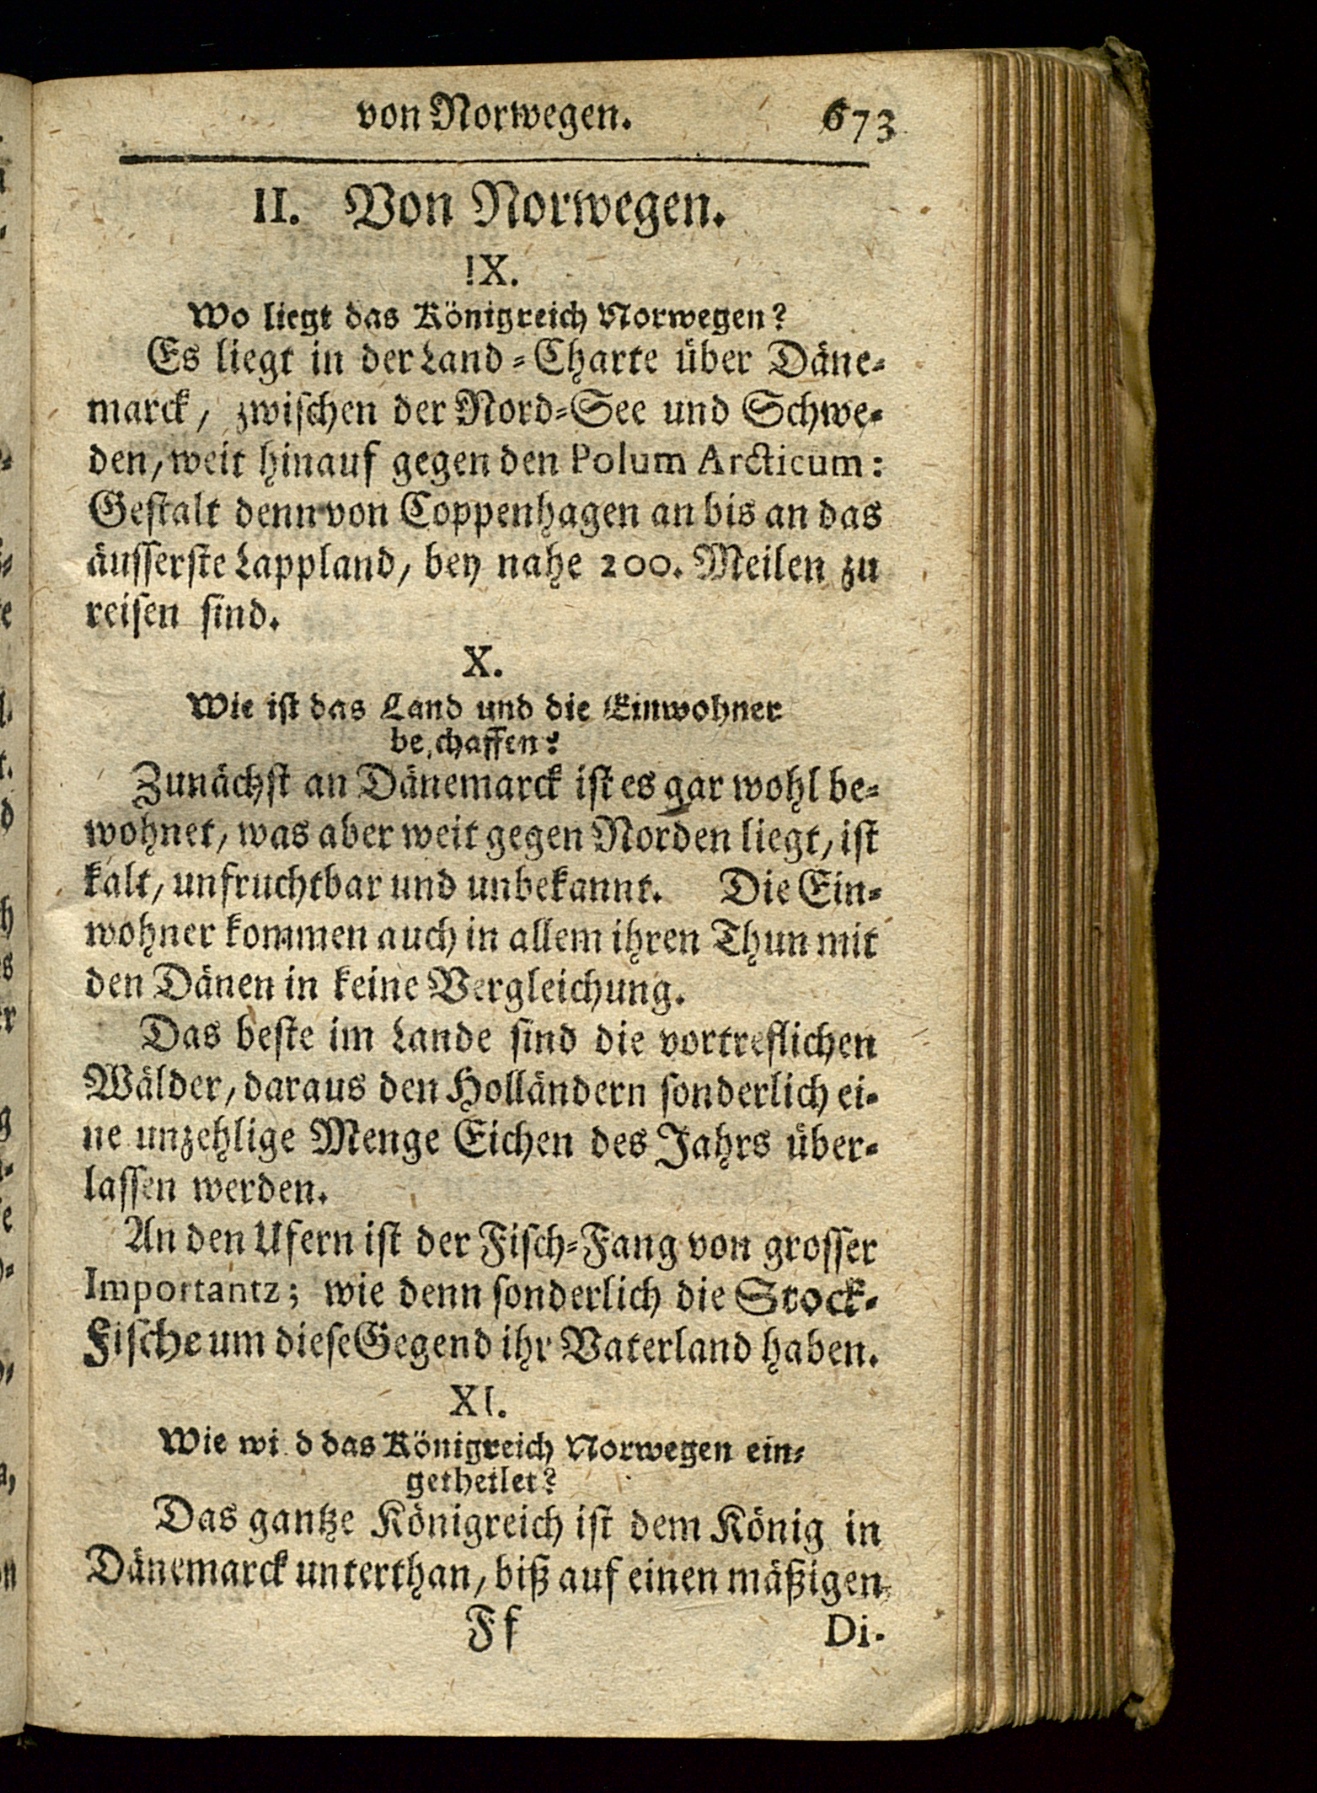 von Norwegen. 673
II. Von Norwegen.
IX.
Wo liegt das Königreich Norwegen?
Es liegt in der Land-Charte über Däne-
marck, zwischen der Nord-See und Schwe-
den, weit hinauf gegen den Polum Arcticum:
Gestalt denn von Coppenhagen an bis an das
äusserste Lappland, bey nahe 200. Meilen zu
reisen sind.
X.
Wie ist das Land und die Einwohner
beschaffen?
Zunächst an Dänemarck ist es gar wohl be-
wohnet, was aber weit gegen Norden liegt, ist
kalt, unfruchtbar und unbekannt. Die Ein-
wohner kommen auch in allem ihren Thun mit
den Dänen in keine Vergleichung.
Das beste im Lande sind die vortreflichen
Wälder, daraus den Holländern sonderlich ei-
ne unzehlige Menge Eichen des Jahrs über-
lassen werden.
An den Ufern ist der Fisch-Fang von grosser
Importantz; wie denn sonderlich die Stock-
Fische um diese Gegend ihr Vaterland haben.
XI.
Wie wi d das Königreich Norwegen ein-
getheilet?
Das gantze Königreich ist dem König in
Dänemarck unterthan, biß auf einen mäßigen
Ff Di-